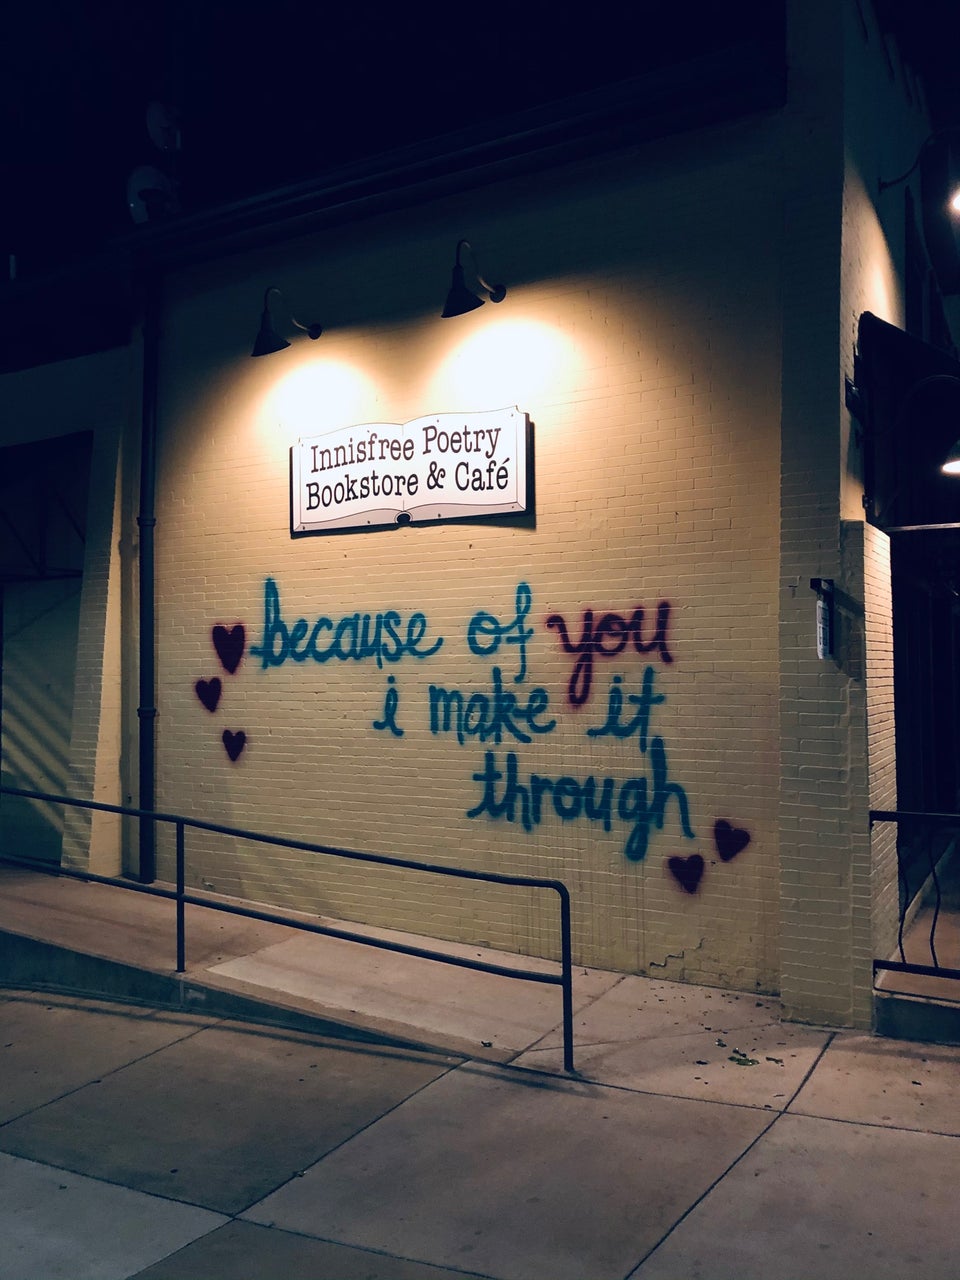 Innisfree Poetry
Bookstore & Café
because of you
i make it
through